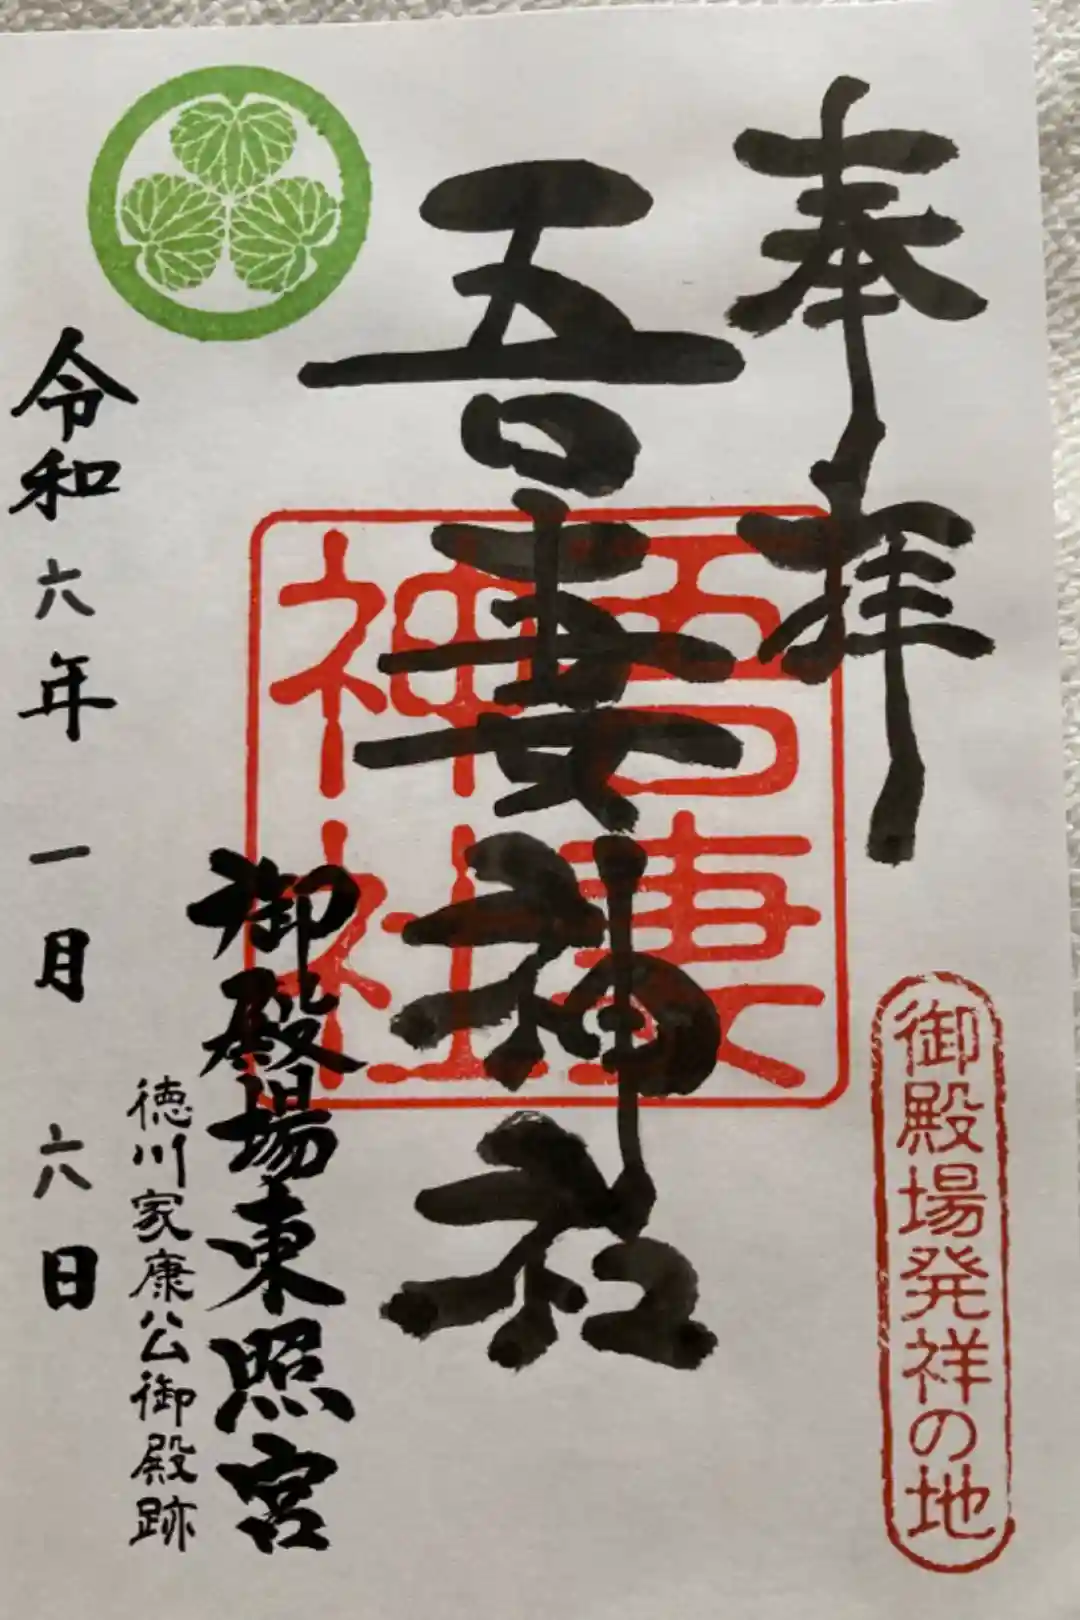 奉拝
御殿場発祥の地
吾妻神社
吾妻
神社
御殿場東照宮
徳川家康公御殿跡
令和六年一月六日